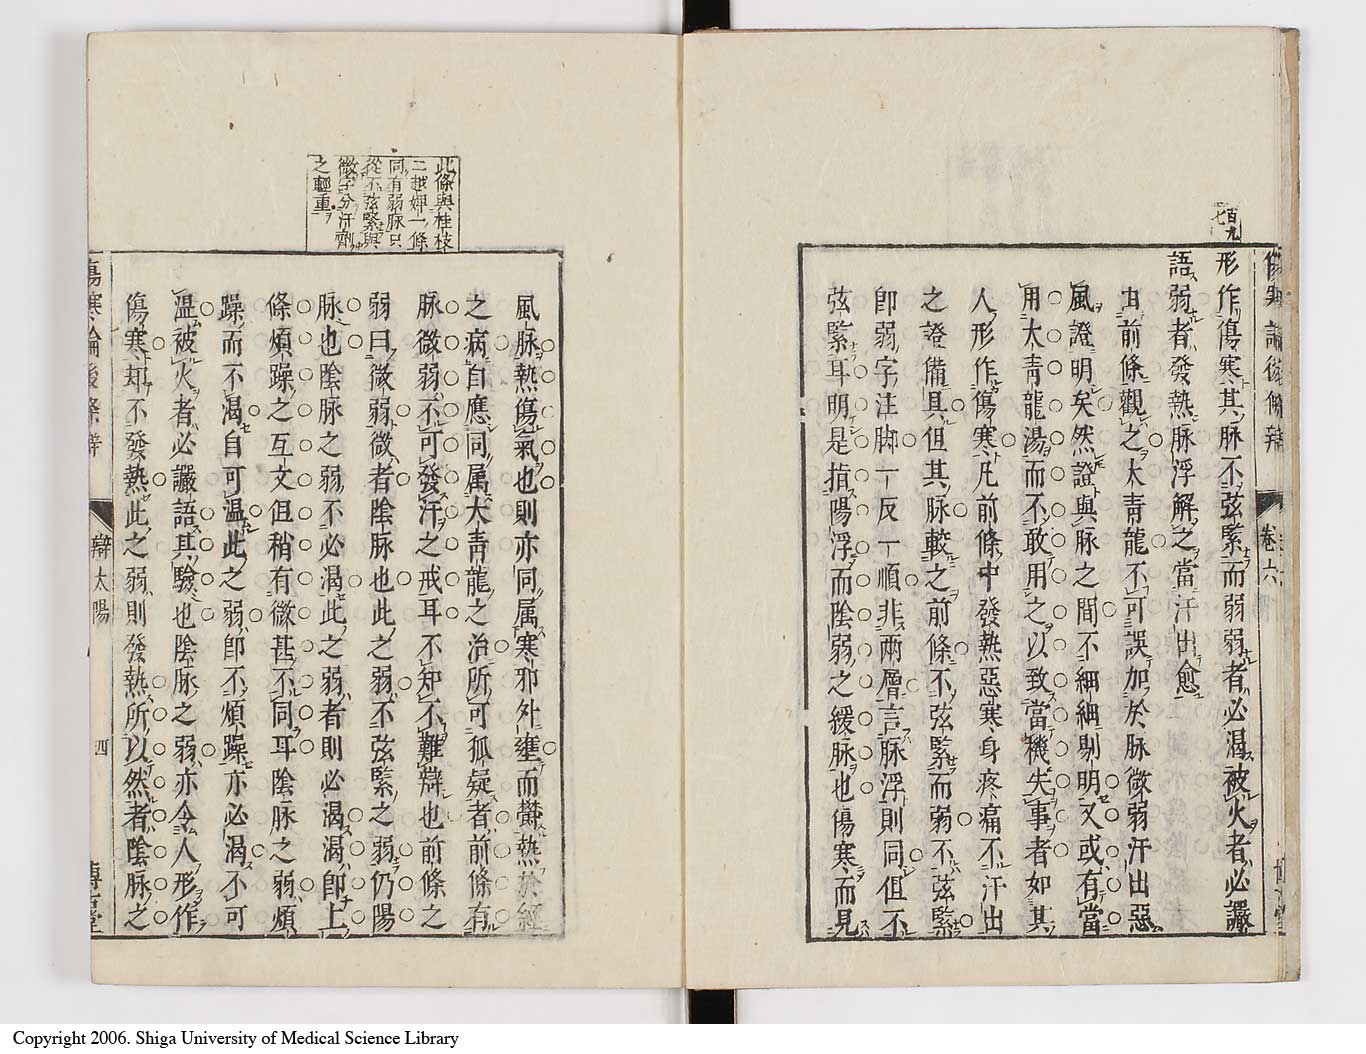 百九
七
形作傷寒其脉不弦緊而弱弱者必渴被火者必讝
語弱者發熱脉浮解之當汗出愈
由前條觀之大青龍不可誤加於脉微弱汗出惡
風證明矣然證與脉之間不細細剔明又或有當
用大青龍湯而不敢用之以致當機失事者如其
人形作傷寒凡前條中發熱惡寒身疼痛不汗出
之證備具但其脉較之前條不弦緊而弱不弦緊
卽弱字注脚一反一順非兩層言脉浮則同但不
弦緊耳明是指陽浮而陰弱之緩脉也傷寒而見
卷六
此條與桂枝
二越婢一條
同有弱脉只
從不弦緊與
微字分汗劑
之輕重
風脉熱傷氣也則亦同属寒邪外壅而欝熱於經
之病自應同属大青龍之治所可狐疑者前條有
脉微弱不可發汗之戒耳不知不難辯也前條之
弱曰微弱微者陰脉也此之弱不弦緊之弱仍陽
脉也陰脉之弱不必渴此之弱者則必渴渴卽上
條煩躁之互文但稍有微甚不同耳陰脉之弱煩
躁而不渴自可温此之弱卽不煩躁亦必渴不可
温被火者必讝語其驗也陰脉之弱亦令人形作
傷寒却不發熱此之弱則發熱所以然者陰脉之
傷寒論後條辯
辯太陽
四
Copyright 2006. Shiga University of Medical Science Library